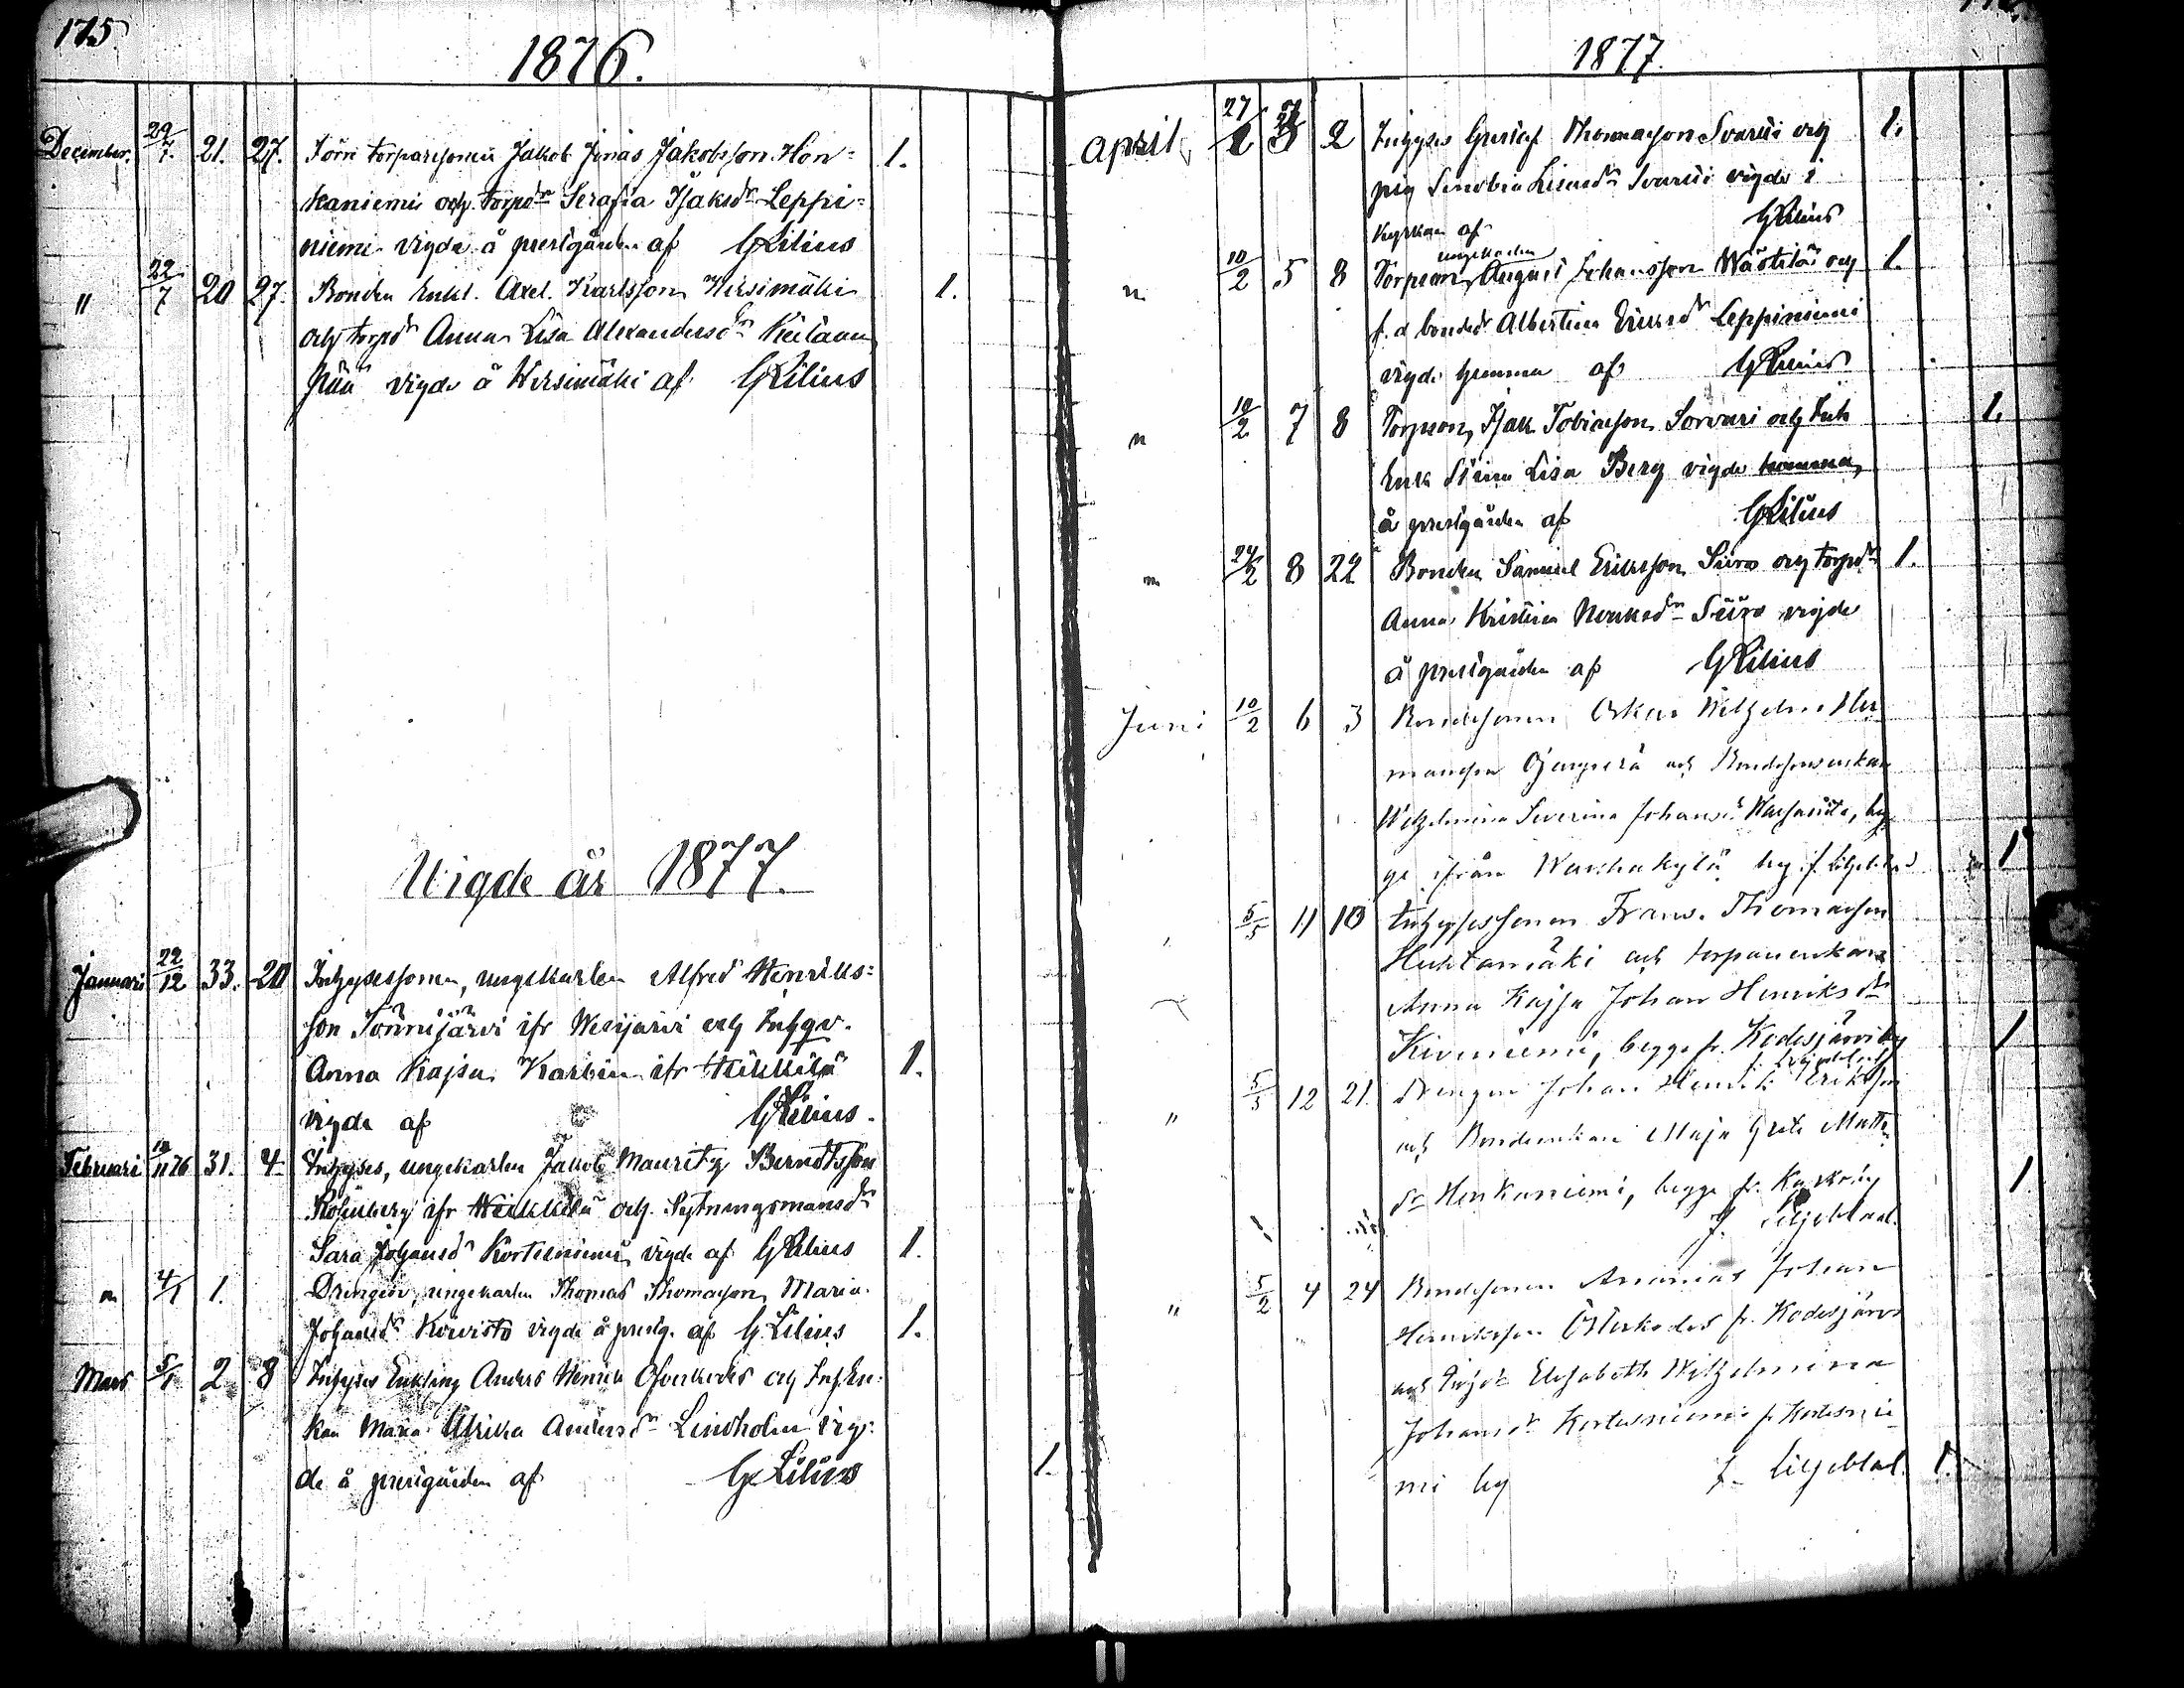 175
1876.
December. 29/7. 21. 27. Förre torparesonen Jakob Jonas Jakobsson Hon=
kaniemi och torpdr Serafia Isaksdr Leppi=
niemi vigde å prestgården af GLilius
" 22/7 20 27. Bonden Enkl. Axel Karlsson Wirsimäki 1.
och torpdr Anna Lisa Alexandersdr
vigde å Wirsimäki af GLilius
Vigde år 1877.
Januari 22/12 33. 20 Inhysessonen, ungekarlen Alfred Henriks=
son Tönnijärvi ifr Wesijärvi och Inhqv.
Anna Kajsa Karlin ifr Heikkilä 1.
vigde af GLilius.
Februari 31. 4 Inhyses, ungekarlen Jakob Mauritz Berndtsson
ifr Heikkilä och Sytningsmansdr
Sara Johansdr Kortesniemi vigde af GLilius 1.
" 4/1 1. Drengen, ungekarlen Thomas Thomasson, Maria
Johansdr Koivisto vigde å prestg. af G.Lilius 1.
Mars 5/1 2 8 Inhyses Enkling Anders Henrik Öfverkodes och Inh.En=
kan Maria Ulrika Andersdr Lindholm vig=
de å prestgården af G.Lilius 1.
1877.
April 27/1 3 2 Inhyses Gustaf Thomasson Svarvi och 1.
pig Svarvi vigde i
kyrkan af GLilius
" 10/2 5 8 Torpson, ungekarlen August Johansson Wästilä och 1.
f.d bondedr Albertina Eriksdr Leppiniemi
vigde hemma af GLilius
" 10/2 7 8 Torpson, Isak Tobiasson Sorvari och Inh 1.
Enk Stina Lisa Berg vigde hemma,
å prestgården af GLilius
" 24/2 8 22 Bonden Samuel Eriksson Siiro och torpdr 1.
Anna Kristina Henriksdr Siiro vigde
å prestgården af GLilius
Juni 10/2 6 3 Bondesonen Oskar Wilhelm Her
mansson Ojanperä och Bondesonsenkan
Wilhelmina Severina Johansdr
ge ifrån Wanhakylä by f. Liljeblad 1
" 5/5 11 10 Inhysessonen Frans Thomasson
Huhtamäki och torpareenkan
Anna Kajsa Johan Henriksdr
Kiviniemi, begge fr. Kodesjärvi by 1
f. Liljeblad
" 5/5 12 21. Drengen Johan Henrik Eriksson
och Bondeenkan Maja Greta Matts
dr Honkaniemi, begge fr. Kyrkoby 1
f. Liljeblad.
" 5/2 4 24 Bondesonen Ananias Johan
Henriksson Österkodes fr. Kodesjärvi
och Elisabeth Wilhelmina
Johansdr Kortesniemi fr Kortesnie
mi by f. Liljeblad. 1.